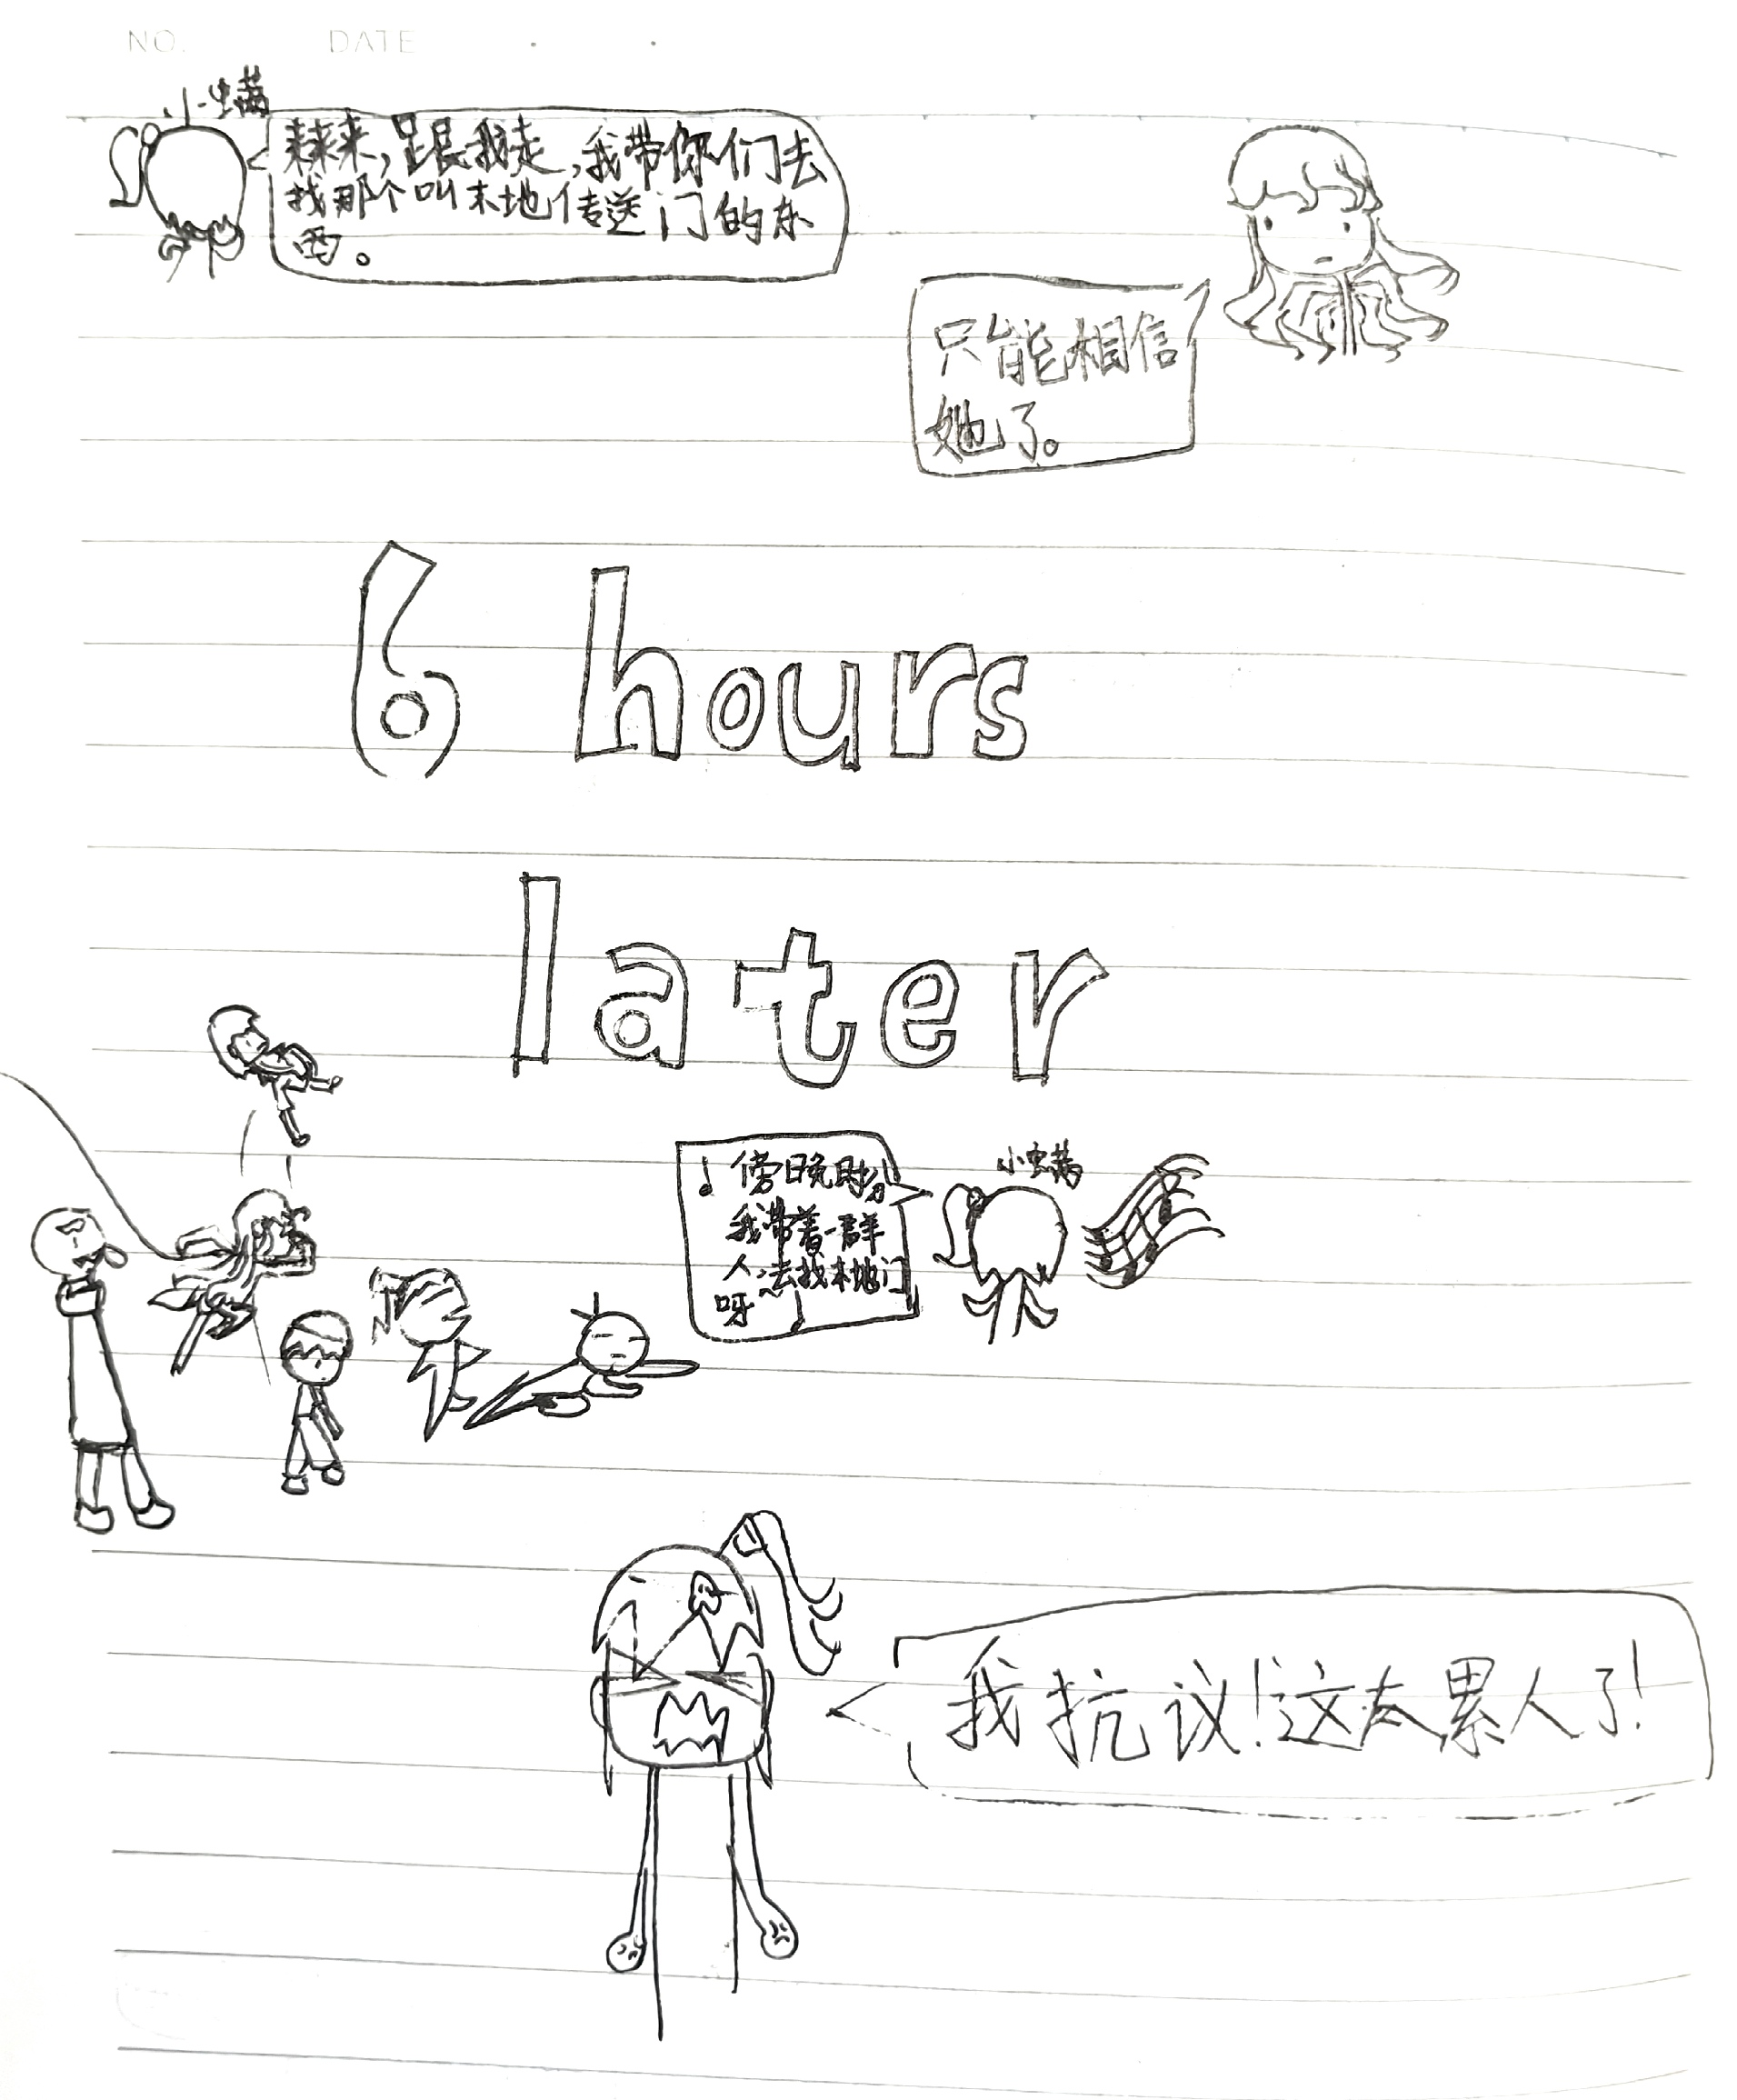 NO.
DATE
小螨
来来来,跟我走,我带你们去
找那个叫末地传送门的东
西。
只能相信
她了。
6 hours
later
傍晚时分
我带着一群
人去找末地门
呀
小螨
我抗议!这太累人了!